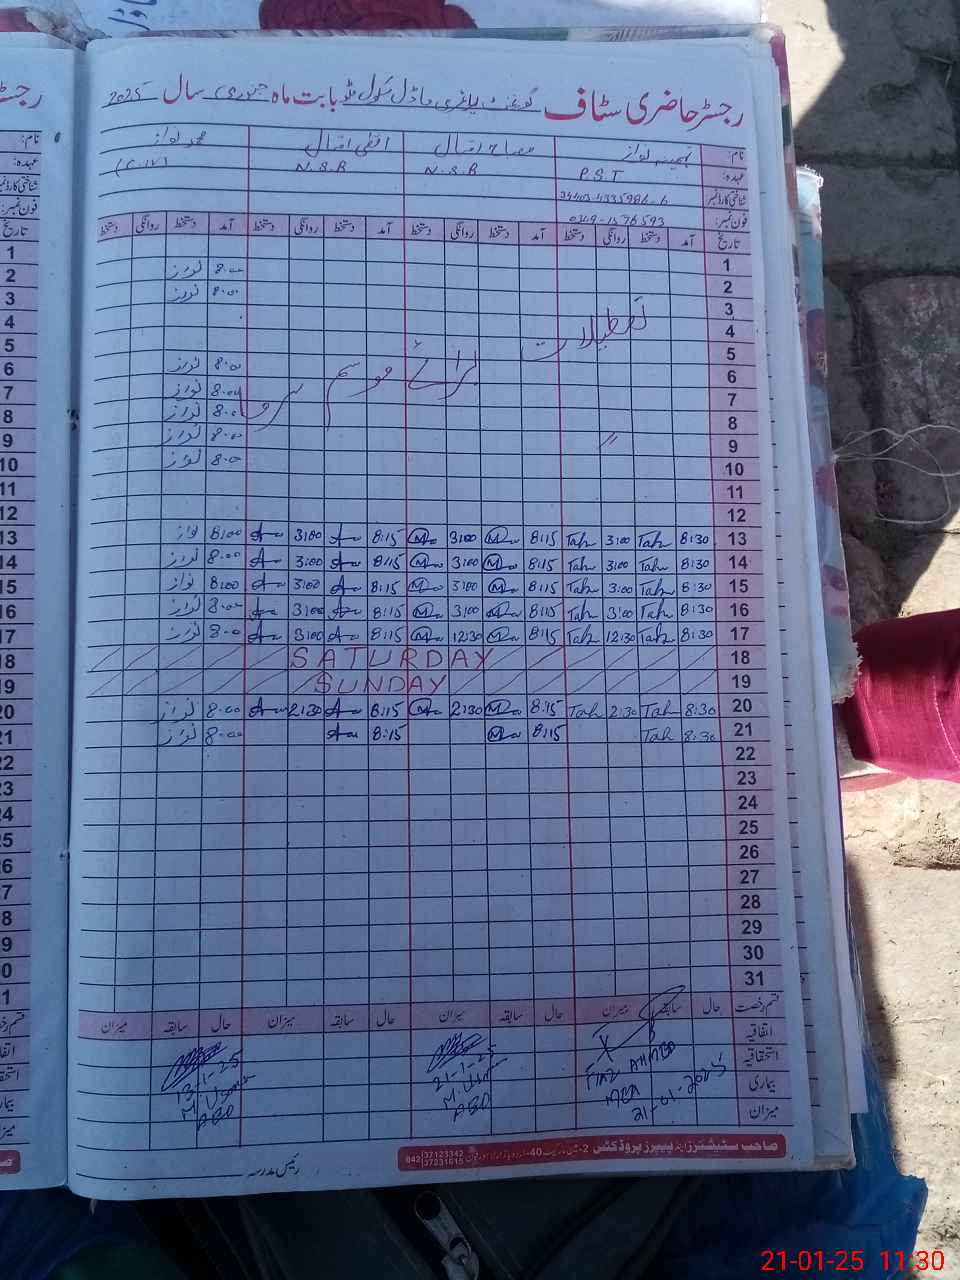 رجسٹر حاضری سٹاف گورنمنٹ پرائمری ماڈل سکول بابت ماہ جنوری سال 2025
نام: تہمینہ نواز مصباح اقبال اقصٰی اقبال محمد نواز
عہدہ: P.S.T N.S.B N.S.B (C.IV)
شناختی کارڈ نمبر
فون نمبر: 0349-1576593
تاریخ آمد دستخط روانگی دستخط آمد دستخط روانگی دستخط آمد دستخط روانگی دستخط آمد دستخط روانگی دستخط
1 8:00 نواز
2 8:00 نواز
3
4
5
تعطیلات برائے موسم سرما
6 8:00 نواز
7 8:00 نواز
8 8:00 نواز
9 8:00 نواز
10 8:00 نواز
11
12
13 8:30 Tah 3:00 Tah 8:15 M 3:00 M 8:15 3:00 8:00 نواز
14 8:30 Tah 3:00 Tah 8:15 M 3:00 M 8:15 3:00 8:00 نواز
15 8:30 Tah 3:00 Tah 8:15 M 3:00 M 8:15 3:00 8:00 نواز
16 8:30 Tah 3:00 Tah 8:15 M 3:00 M 8:15 3:00 8:00 نواز
17 8:30 Tah 12:30 Tah 8:15 M 12:30 M 8:15 3:00 8:00 نواز
18 SATURDAY
19 SUNDAY
20 8:30 Tah 2:30 Tah 8:15 M 2:30 M 8:15 2:30 8:00 نواز
21 8:30 Tah 8:15 M 8:15 8:00 نواز
22
23
24
25
26
27
28
29
30
31
قسم رخصت حال سابقہ میزان حال سابقہ میزان حال سابقہ میزان حال سابقہ میزان
اتفاقیہ
استحقاقیہ
بیماری
میزان
AHMED
MEA
21-01-2025
21-1-25
M. Usman
AEO
13-1-25
M. Usman
AEO
رئیس مدرسہ
صاحب سٹیشنرز اینڈ پیپرز پروڈکٹس
042 37123342
37231615
21-01-25 11:30